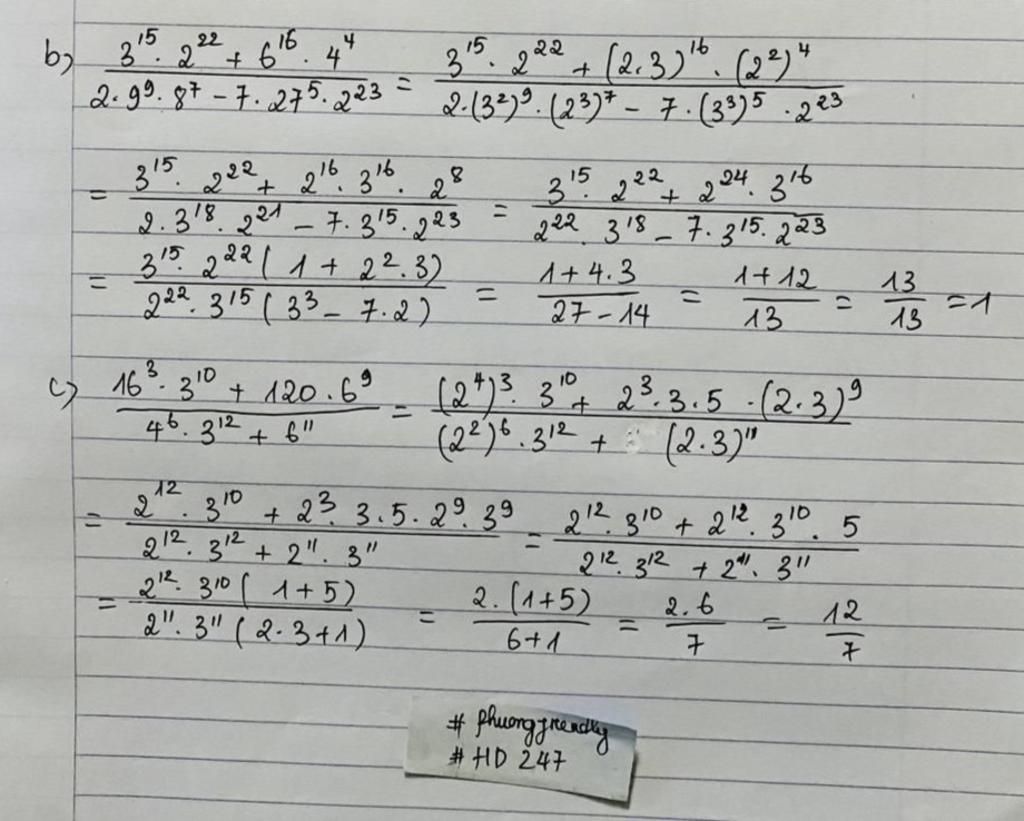 b) \frac{3^{15} . 2^{22} + 6^{16} . 4^4}{2 . 9^9 . 8^7 - 7 . 27^5 . 2^{23}} = \frac{3^{15} . 2^{22} + (2.3)^{16} . (2^2)^4}{2 . (3^2)^9 . (2^3)^7 - 7 . (3^3)^5 . 2^{23}}
= \frac{3^{15} . 2^{22} + 2^{16} . 3^{16} . 2^8}{2 . 3^{18} . 2^{21} - 7 . 3^{15} . 2^{23}} = \frac{3^{15} . 2^{22} + 2^{24} . 3^{16}}{2^{22} . 3^{18} - 7 . 3^{15} . 2^{23}}
= \frac{3^{15} . 2^{22} ( 1 + 2^2 . 3)}{2^{22} . 3^{15} ( 3^3 - 7 . 2)} = \frac{1 + 4 . 3}{27 - 14} = \frac{1 + 12}{13} = \frac{13}{13} = 1
c) \frac{16^3 . 3^{10} + 120 . 6^9}{4^6 . 3^{12} + 6^{11}} = \frac{(2^4)^3 . 3^{10} + 2^3 . 3 . 5 . (2.3)^9}{(2^2)^6 . 3^{12} + (2.3)^{11}}
= \frac{2^{12} . 3^{10} + 2^3 . 3 . 5 . 2^9 . 3^9}{2^{12} . 3^{12} + 2^{11} . 3^{11}} = \frac{2^{12} . 3^{10} + 2^{12} . 3^{10} . 5}{2^{12} . 3^{12} + 2^{11} . 3^{11}}
= \frac{2^{12} . 3^{10} ( 1 + 5)}{2^{11} . 3^{11} ( 2 . 3 + 1)} = \frac{2 . (1 + 5)}{6 + 1} = \frac{2 . 6}{7} = \frac{12}{7}
# HD 247